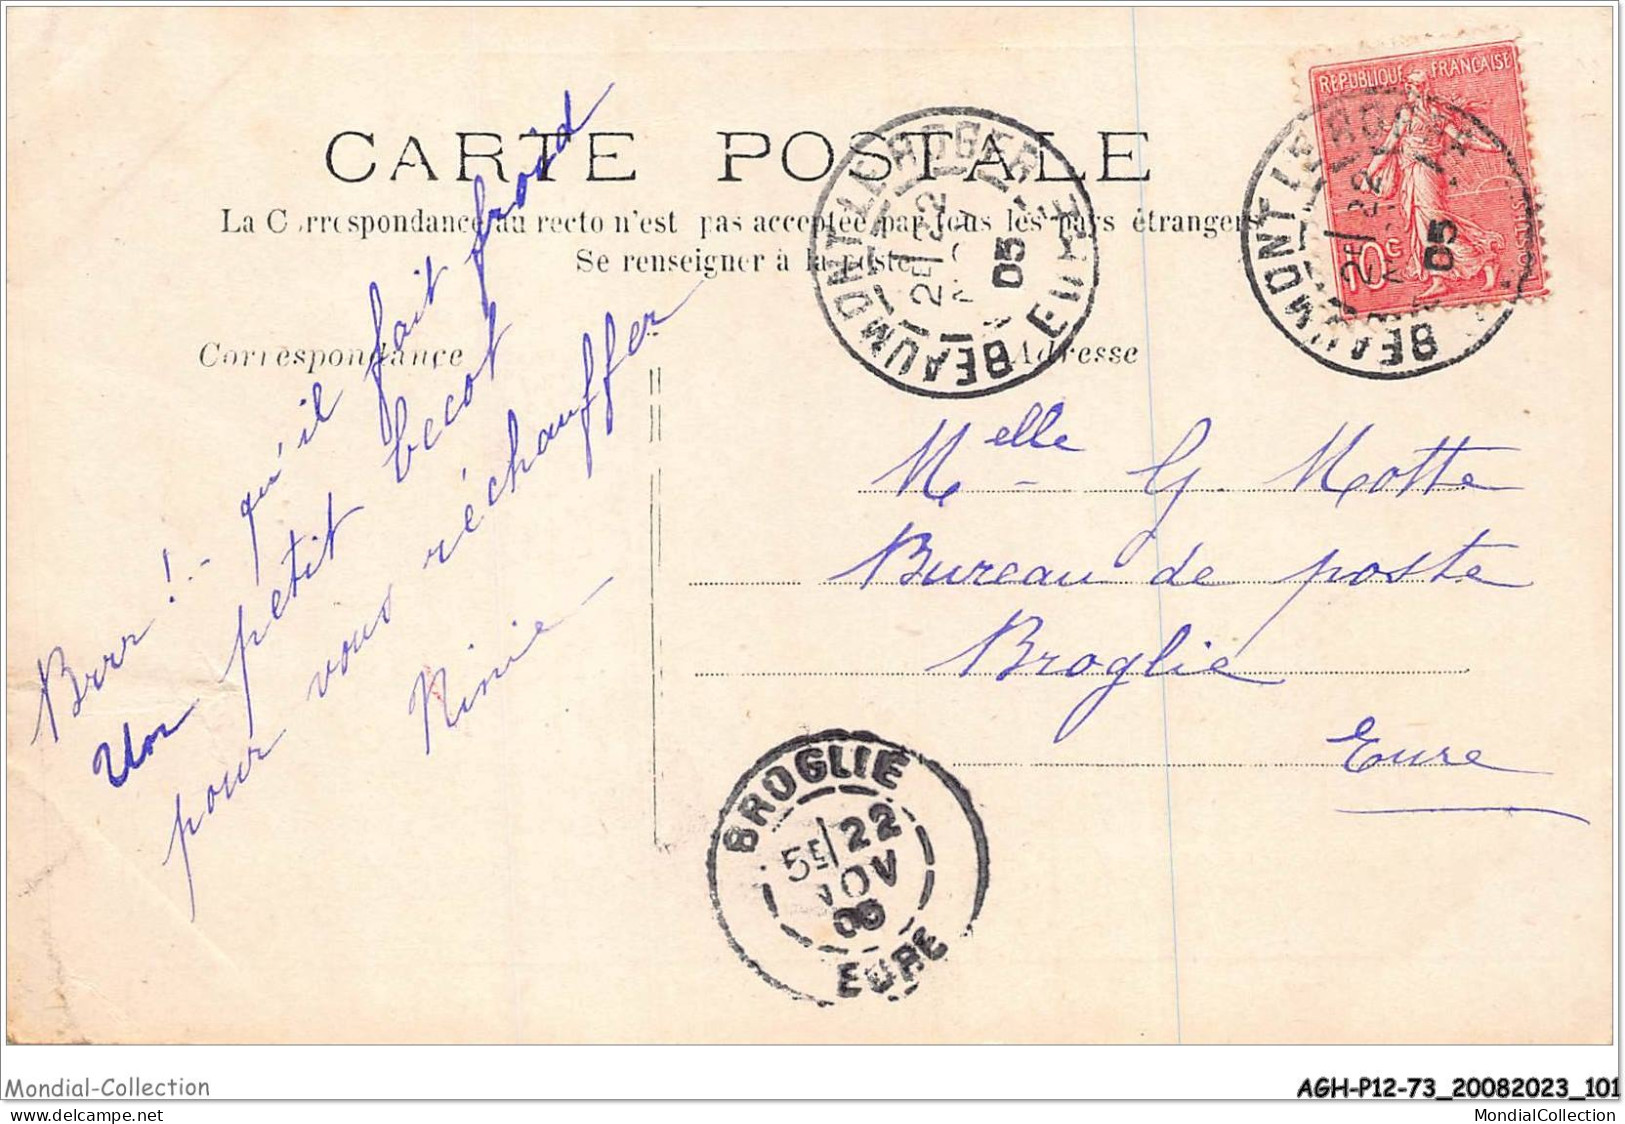 CARTE POSTALE
La Correspondance au recto n'est pas acceptée par tous les pays étrangers
Se renseigner à la poste
Correspondance
Adresse
Brrr ! - qu'il fait froid
Un petit becot
pour vous réchauffer
Ninie
Melle G. Motte
Bureau de poste
Broglie
Eure
REPUBLIQUE FRANÇAISE
10 c
BEAUMONT LE ROGER
2E/22
05
EURE
BEAUMONT LE ROGER
2E/22
05
BROGLIE
5E/22
NOV
EURE
Mondial-Collection
AGH-P12-73_20082023_101
MondialCollection
MondialCollection.net